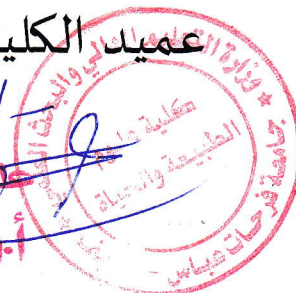 عميد الكلية
وزارة التعليم العالي والبحث العلمي
جامعة فرحات عباس -
كلية علوم
الطبيعة والحياة